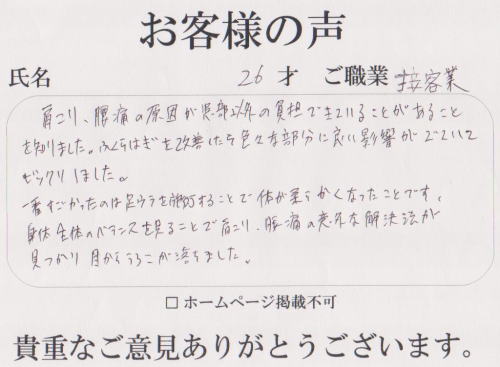 お客様の声
氏名 26 才 ご職業 接客業
肩こり、腰痛の原因が患部以外の負担できていることがあること
を知りました。ふくらはぎを改善したら色々な部分に良い影響がでていて
ビックリしました。
一番すごかったのは足ウラを することで体が柔らかくなったことです。
身体全体のバランスを見ることで肩こり、腰痛の意外な解決法が
見つかり目からうろこが落ちました。
□ ホームページ掲載不可
貴重なご意見ありがとうございます。